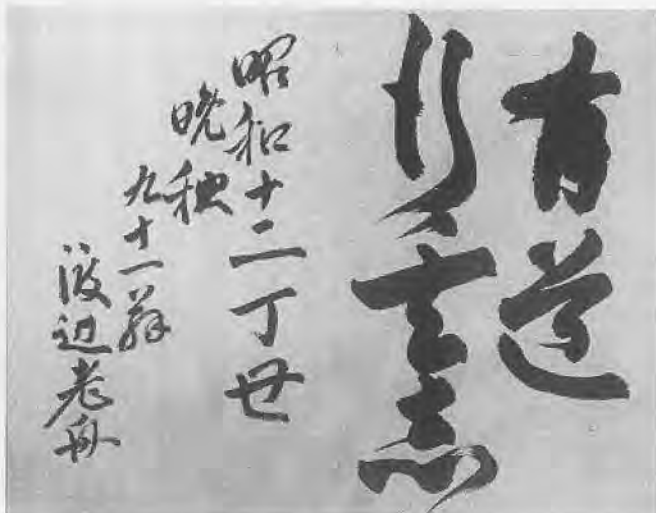 有道
行言志
昭和十二丁丑
晩秋
九十一翁
渡辺老舟